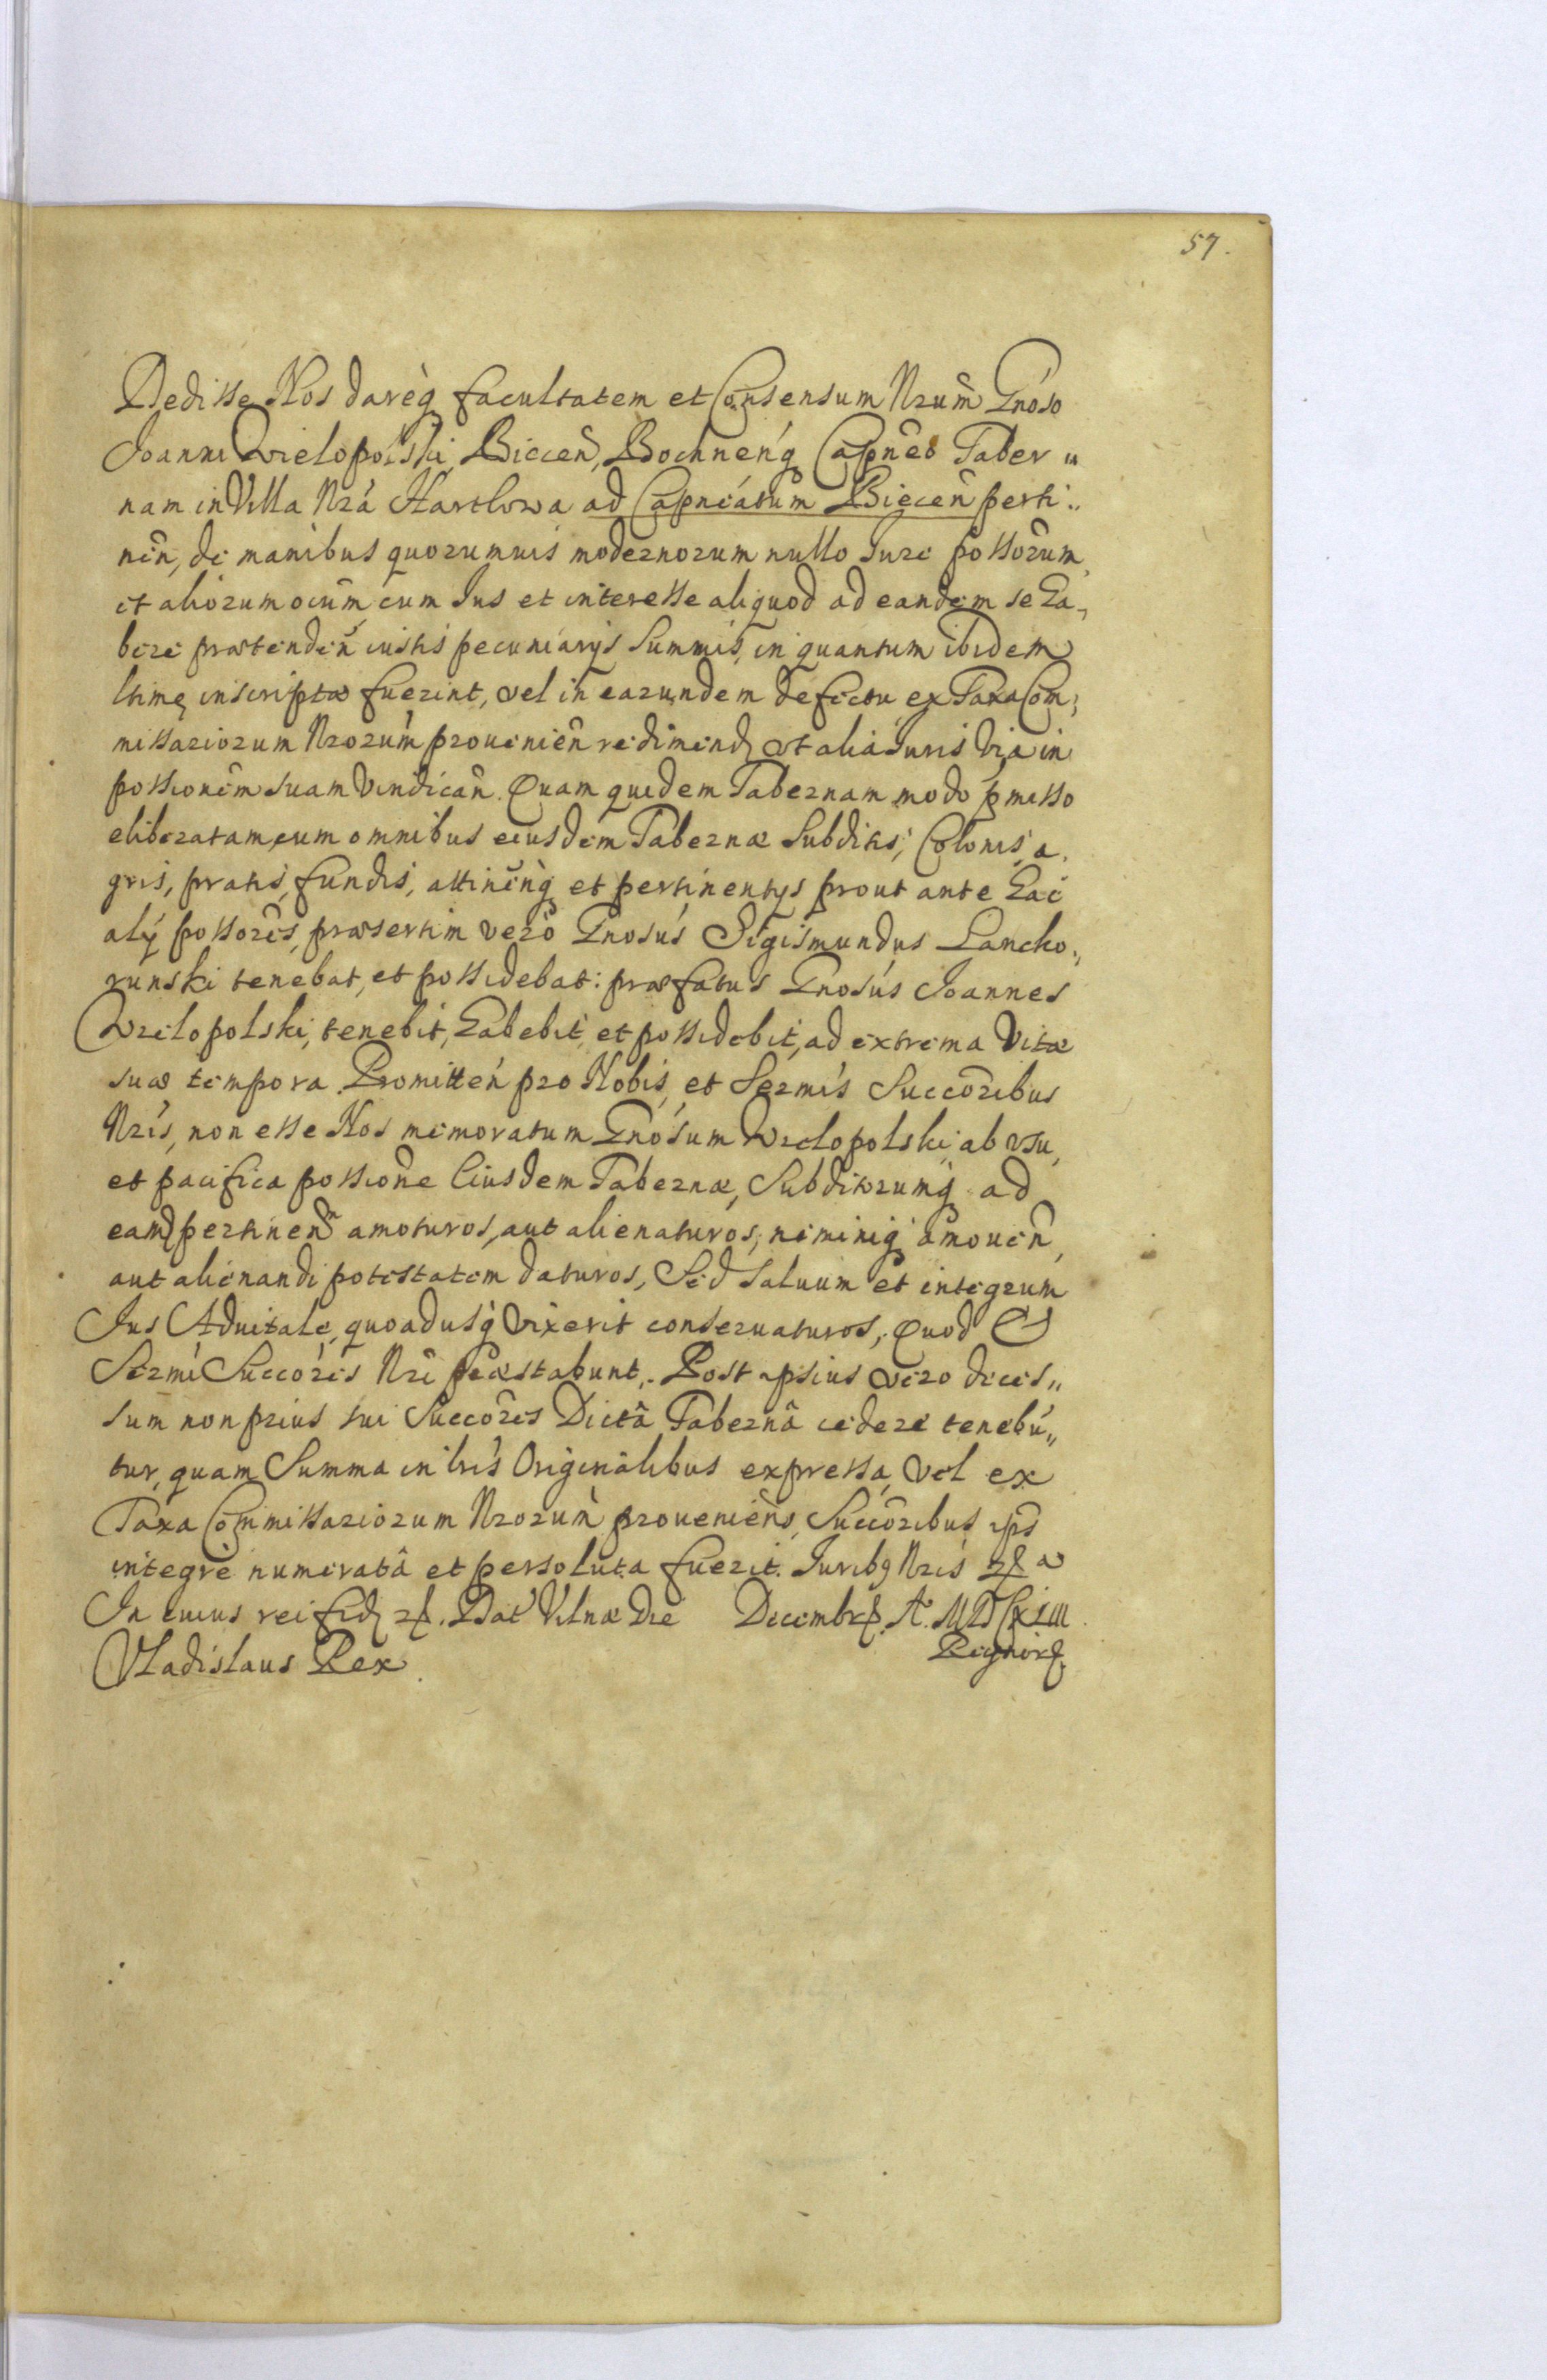 57.
Dedisse Nos dareq́ facultatem et Consensum Nrum̃ Gnóso
Joanni Wielopolski, Biecen̄, Bochnen̄q́ Capn̄eo Taber„
nam in Villa Nrá Harklowa ad Capneátum Biecen̄ perti„
nen̄, de manibus quorumuis modernorum nullo Jure possorum̄,
et aliorum ocium̄ cum Jus et interesse aliquod ad eandem se ha„
bere prætenden̄ iustis pecuniarijs Summis, in quantum ibidem
ltime inscriptæ fuerint, vel in earundem defectu ex Taxa Com„
missariorum Nrorum̄ prouenien̄ redimend̄ et aliá Juris via in
possionem̄ suam vindican̄. Quam quidem Tabernam modo p̄misso
eliberatam cum omnibus eiusdem Tabernæ Subditis, Colonis, a„
gris, pratis, fundis, attinen̄q́ et pertinentijs prout ante hac
alij possores̄, præsertim verò Gnosús Sigismundus Lancko„
runski tenebat, et possidebat: præfatus Gnosús Joannes
Wielopolski, tenebit, habebit, et possidebit, ad extrema vitæ
suæ tempora. Promitten̄ pro Nobis, et Sermís Succoribus̄
Nrís, non esse Nos memoratum Gnósum Wielopolski, ab vsu,
et pacifica possionē Eiusdem Tabernæ, Subditorumq́ ad
eamd̄ pertinen̄ amoturos, aut alienaturos, neminiq́ amouen̄,
aut alienandi potestatem daturos, Sed saluum et integrum
Jus Aduitale, quoadusq́ vixerit conseruaturos, Quod &
Sermí Succorés Nri p̄ræstabunt. Post ipsius vero deces„
sum non prius sui Succorés Dictâ Tabernâ cedere tenebú„
tur, quam Summa in lrís Originalibus expressa, vel ex
Taxa Commissariorum Nrorum̄ proueniens̄, Succoribus̄ ips̄
integrè numeratâ et persoluta fuerit. Juribq Nrís
In cuius rei fid̄. Dat̄ Vilnæ Die Decembr. A. MDCXLIII
Regnor̄
Vladislaus Rex